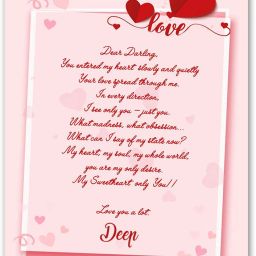 love
Dear Darling,
You entered my heart slowly and quietly
Your love spread through me.
In every direction,
I see only you – just you.
What madness, what obsession...
What can I say of my state now?
My heart, my soul, my whole world,
you are my only desire.
My Sweetheart only You!!
Love you a lot.
Deep